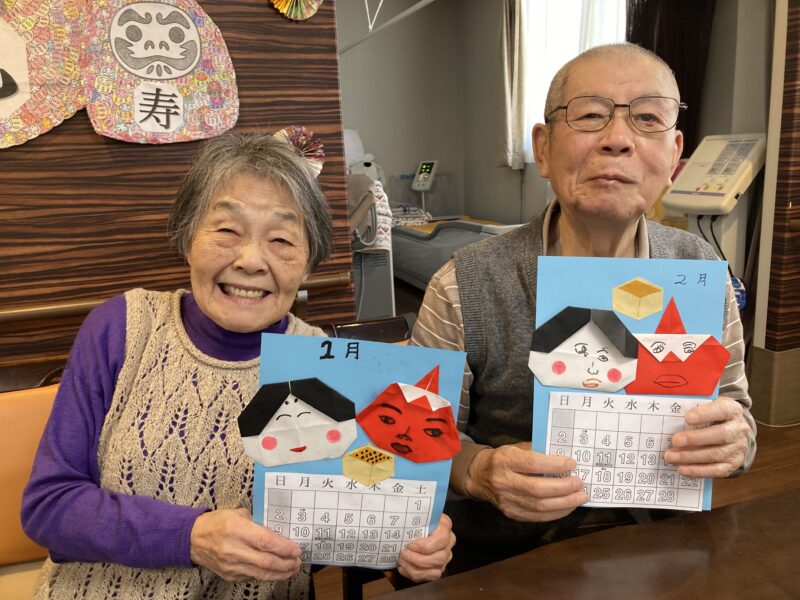 寿
2月
日 月 火 水 木 金 土
1
2 3 4 5 6 7 8
9 10 11 12 13 14 15
18 19 20 21
25 26 27
2月
日 月 火 水 木 金
2 3 4 5 6
9 10 11 12 13
18 19 20 21 22
25 26 27 28